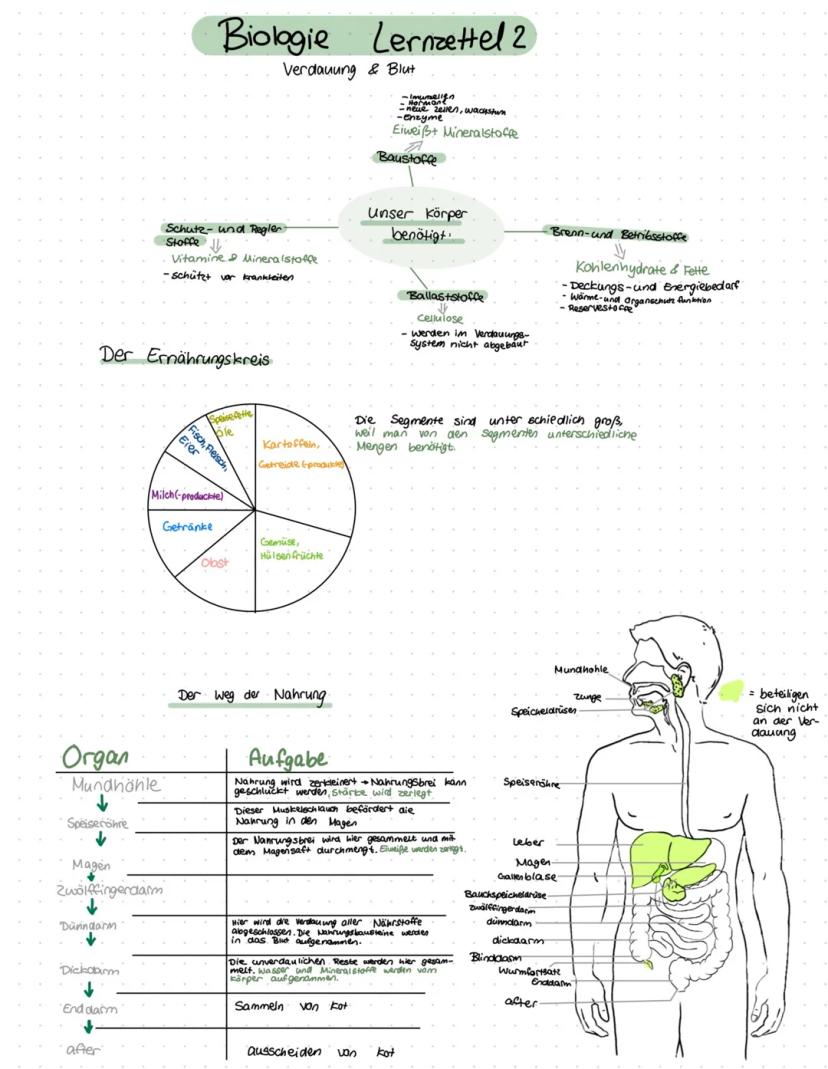 Biologie Lernzettel 2
Verdauung & Blut
- Imunzellen
- Hormone
- neue Zellen, Wachstum
- Enzyme
Eiweiß+ Mineralstoffe
Baustoffe
Unser Körper
benötigt:
Schutz- und Regler
Stoffe
Vitamine & Mineralstoffe
- schützt vor Krankheiten
Brenn-und Betribsstoffe
Kohlenhydrate & Fette
- Deckungs-und Energiebedarf
- Wärme-und Organschutz funktion
- Reservestoffe
Ballaststoffe
Cellulose
- werden im Verdauungs-
system nicht abgebaut
Der Ernährungskreis
Speisefette
öle
Fisch, Fleisch,
Eier
Kartoffeln,
Getreide (-produkte)
Milch(-produckte)
Getränke
Obst
Gemüse,
Hülsenfrüchte
Die Segmente sind unter schiedlich groß,
weil man von den Segmenten unterschiedliche
Mengen benötigt.
Der Weg der Nahrung
Organ
Aufgabe
Mundhöhle
Nahrung wird zerkleinert → Nahrungsbrei kann
geschluckt werden, Stärke wird zerlegt
Speiseröhre
Dieser Muskelschlauch befördert die
Nahrung in den Magen
Magen
Der Nahrungsbrei wird hier gesammelt und mit
dem Magensaft durchmengt. Eiweiße werden zerlegt.
Zwölffingerdarm
Dünndarm
Hier wird die Verdauung aller Nährstoffe
abgeschlossen. Die Nahrungsbausteine werden
in das Blut aufgenommen.
Dickdarm
Die unverdaulichen Reste werden hier gesam-
melt. Wasser und Mineralstoffe werden vom
Körper aufgenommen.
Enddarm
Sammeln von Kot
after
ausscheiden von Kot
Mundhöhle
Zunge
Speicheldrüsen
= beteiligen
sich nicht
an der Ver-
dauung
Speiseröhre
Leber
Magen
Gallenblase
Bauchspeicheldrüse
Zwölffingerdarm
dünndarm
dickdarm
Blinddarm
Wurmfortsatz
Enddarm
after